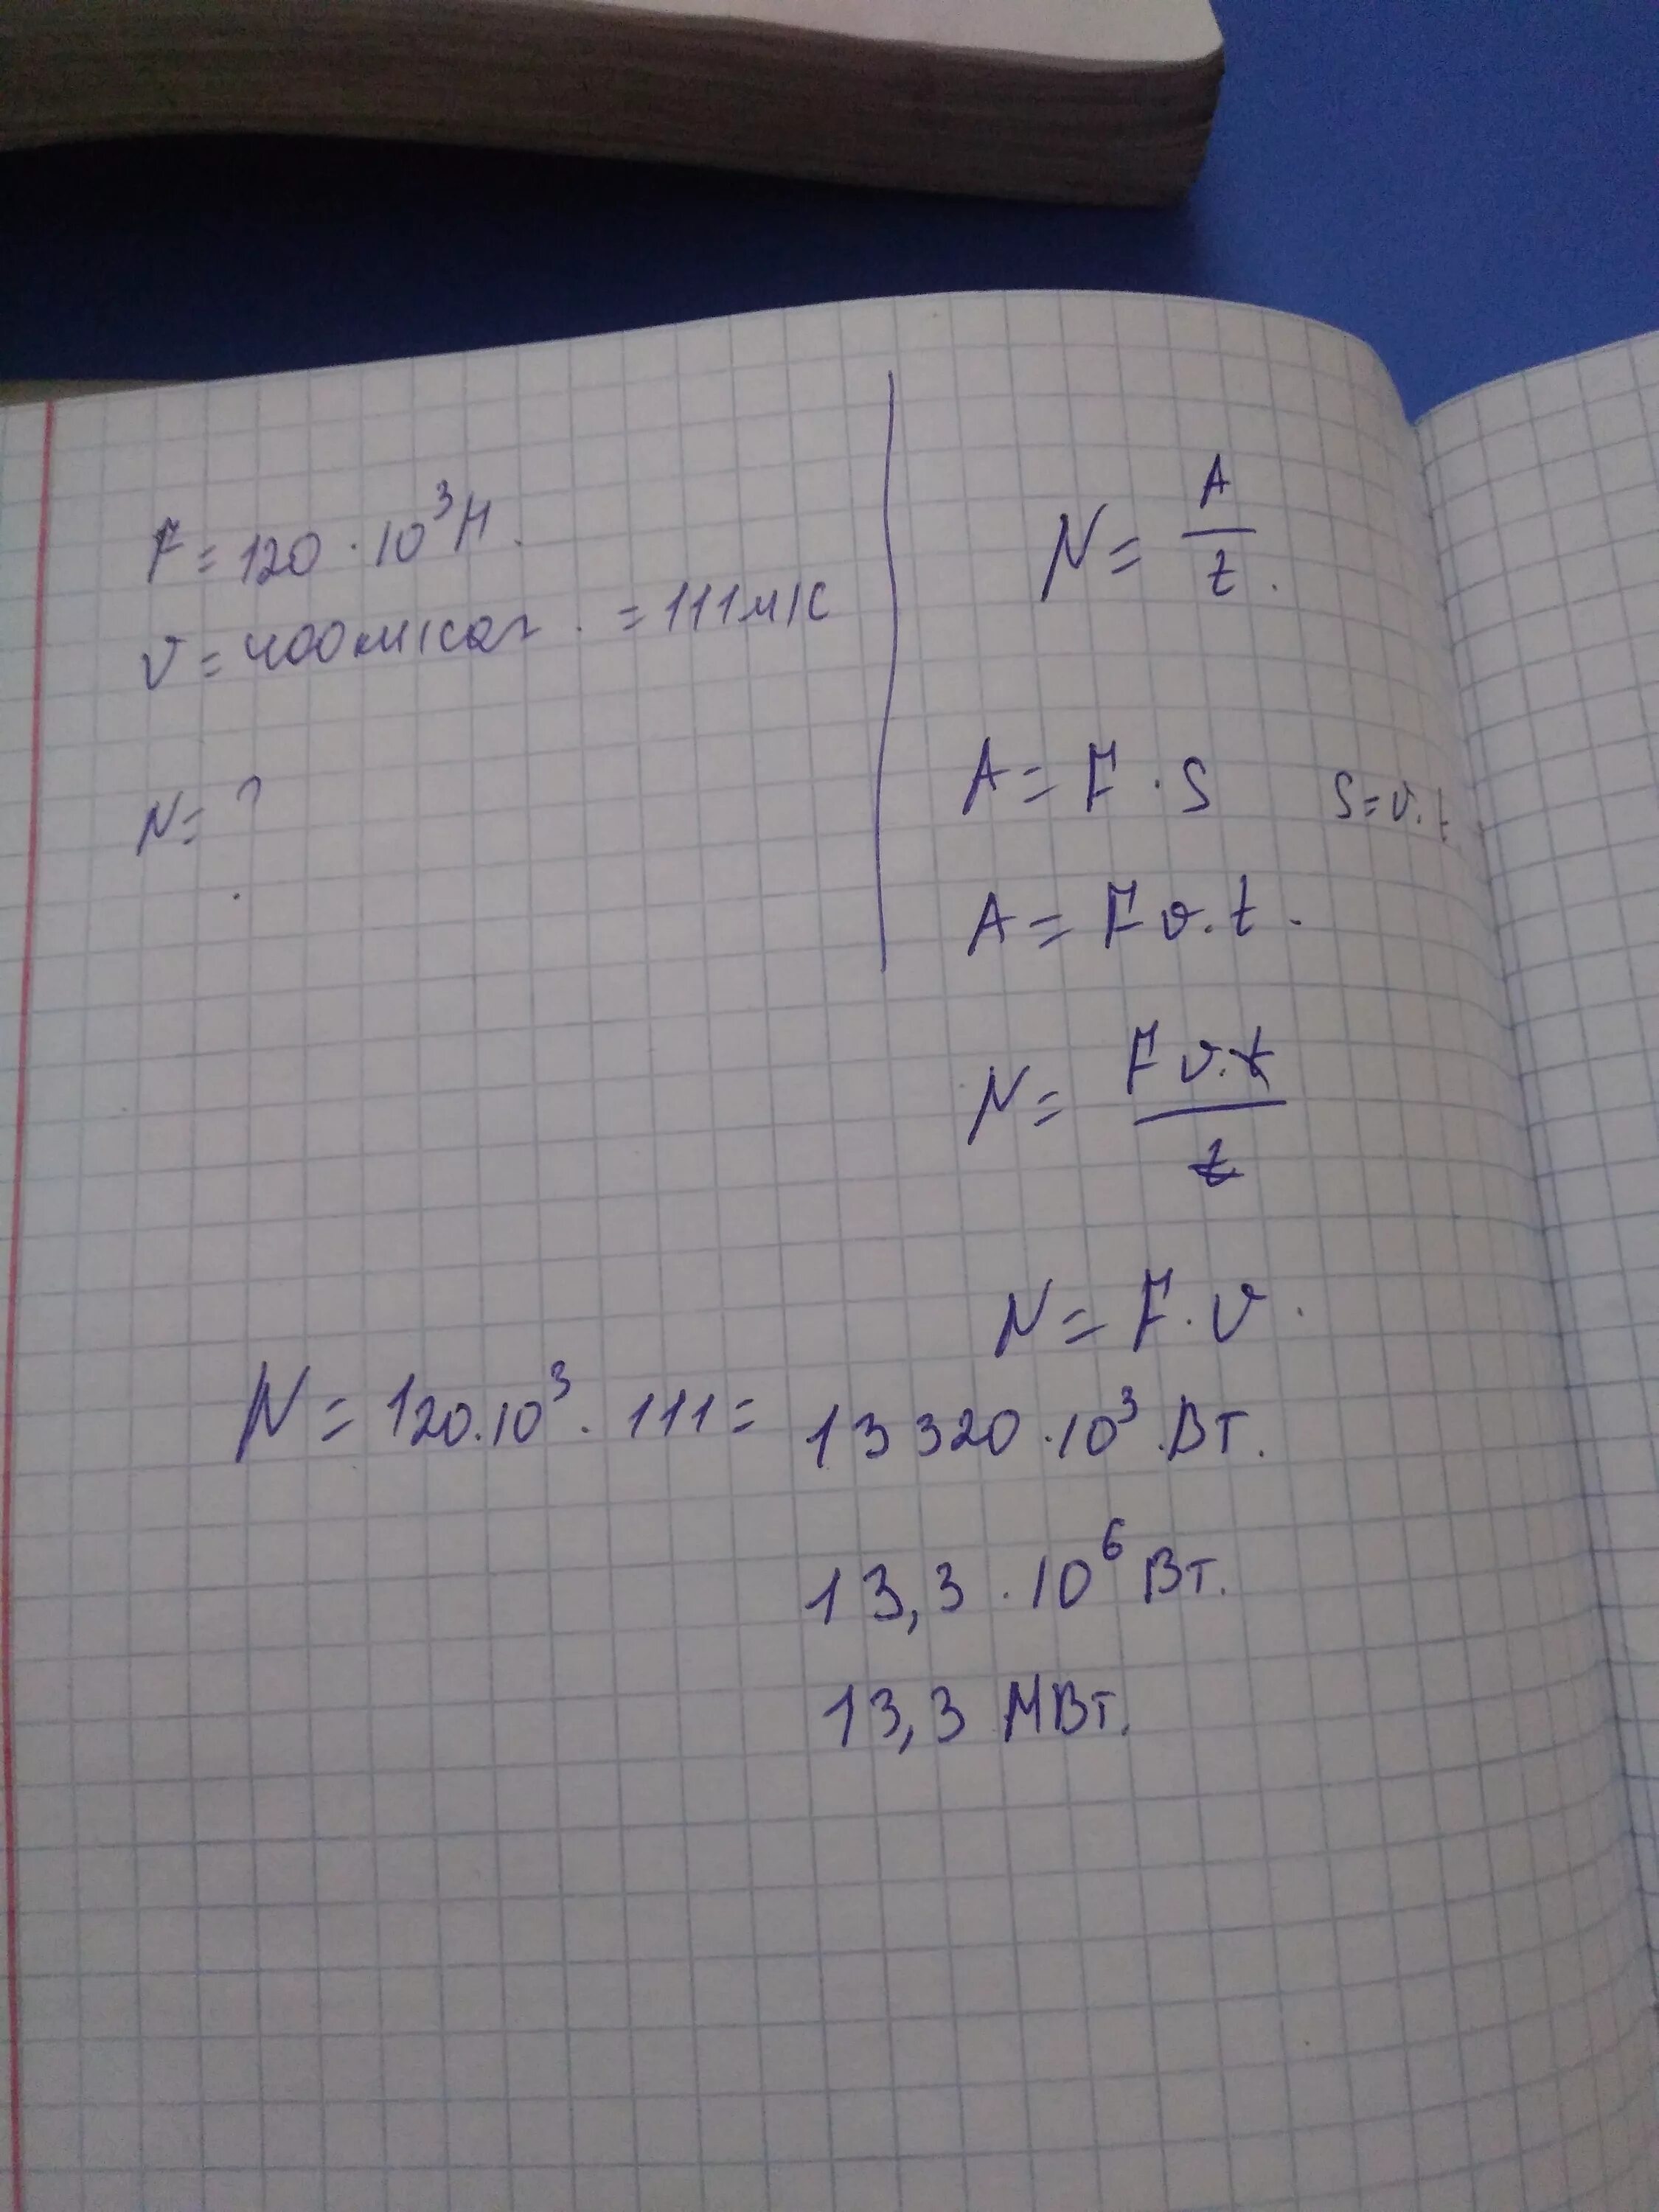 F = 120 · 10³ Н.
v = 400 км/саг. = 111 м/с
N = ?
N = A / t.
A = F · S    S = v. t
A = F v. t.
N = F v. t / t
N = F. v.
N = 120. 10³. 111 = 13 320 · 10³ Вт.
13,3 · 10⁶ Вт.
13,3 МВт.